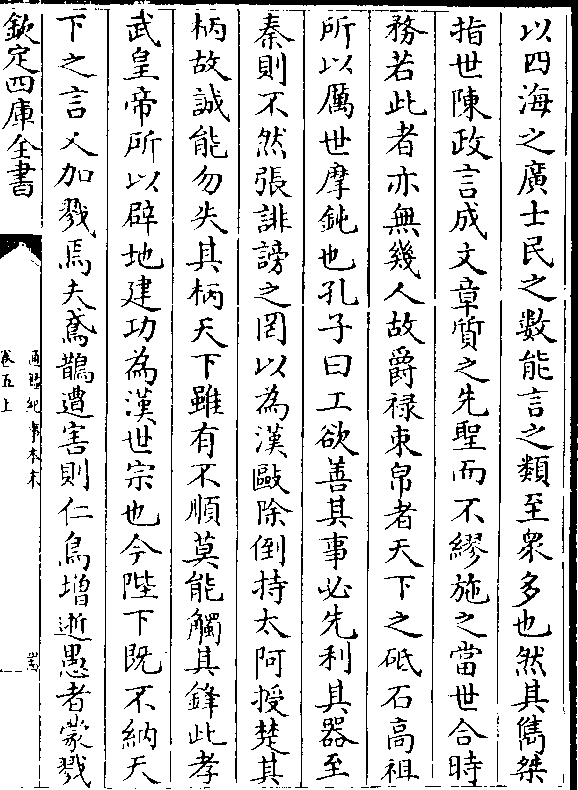 以四海之廣士民之數能言之類至衆多也然其雋桀
指世陳政言成文章質之先聖而不繆施之當世合時
務若此者亦無幾人故爵禄束帛者天下之砥石高祖
所以厲世摩鈍也孔子曰工欲善其事必先利其器至
秦則不然張誹謗之罔以為漢敺除倒持太阿授楚其
柄故誠能勿失其柄天下雖有不順莫能觸其鋒此孝
武皇帝所以辟地建功為漢世宗也今陛下既不納天
下之言又加戮焉夫鳶鵲遭害則仁鳥增逝愚者蒙戮
欽定四庫全書
通鑑紀事本末
卷五上